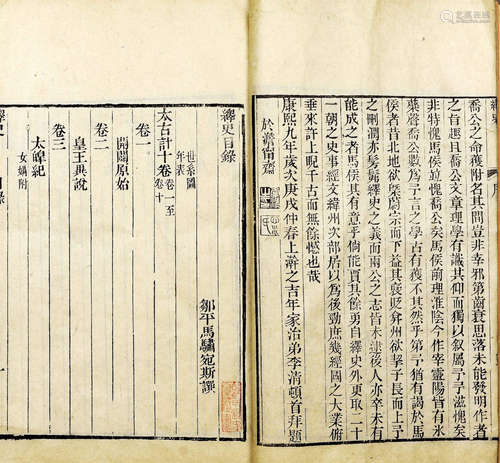 喬公之命獲附名其間豈非幸邪第齋衰思落未能發明作者
之旨趣且喬公文章理學有識其仰而獨以叙屬予予滋愧矣
非特愧馬侯竝愧喬公矣馬侯前理淮陰今作宰靈陽皆有氷
蘗聲喬公數為予言之學古有獲不其然乎第予猶有謁於馬
侯者昔北地欲槩宗而下益其褒貶弇州欲挈子長而上予
之刪潤亦髣髴繹史之義而兩公之志皆未逮後人亦卒未有
能成之者馬侯其有意乎倘能賈其餘勇自繹史外更取二十
一朝之史事經文緯州次部居以為後勁庶幾經國之大業俯
垂來許上睨千古而無餘憾也哉
康熙九年歲次庚戌仲春上澣之吉年家治弟李清頓首拜題
於澹甯齋
繹史目錄
鄒平馬驌宛斯譔
世系圖
年表
太古計十卷
卷一至
卷十
卷一
開闢原始
卷二
皇王異說
卷三
太皥紀
女媧附